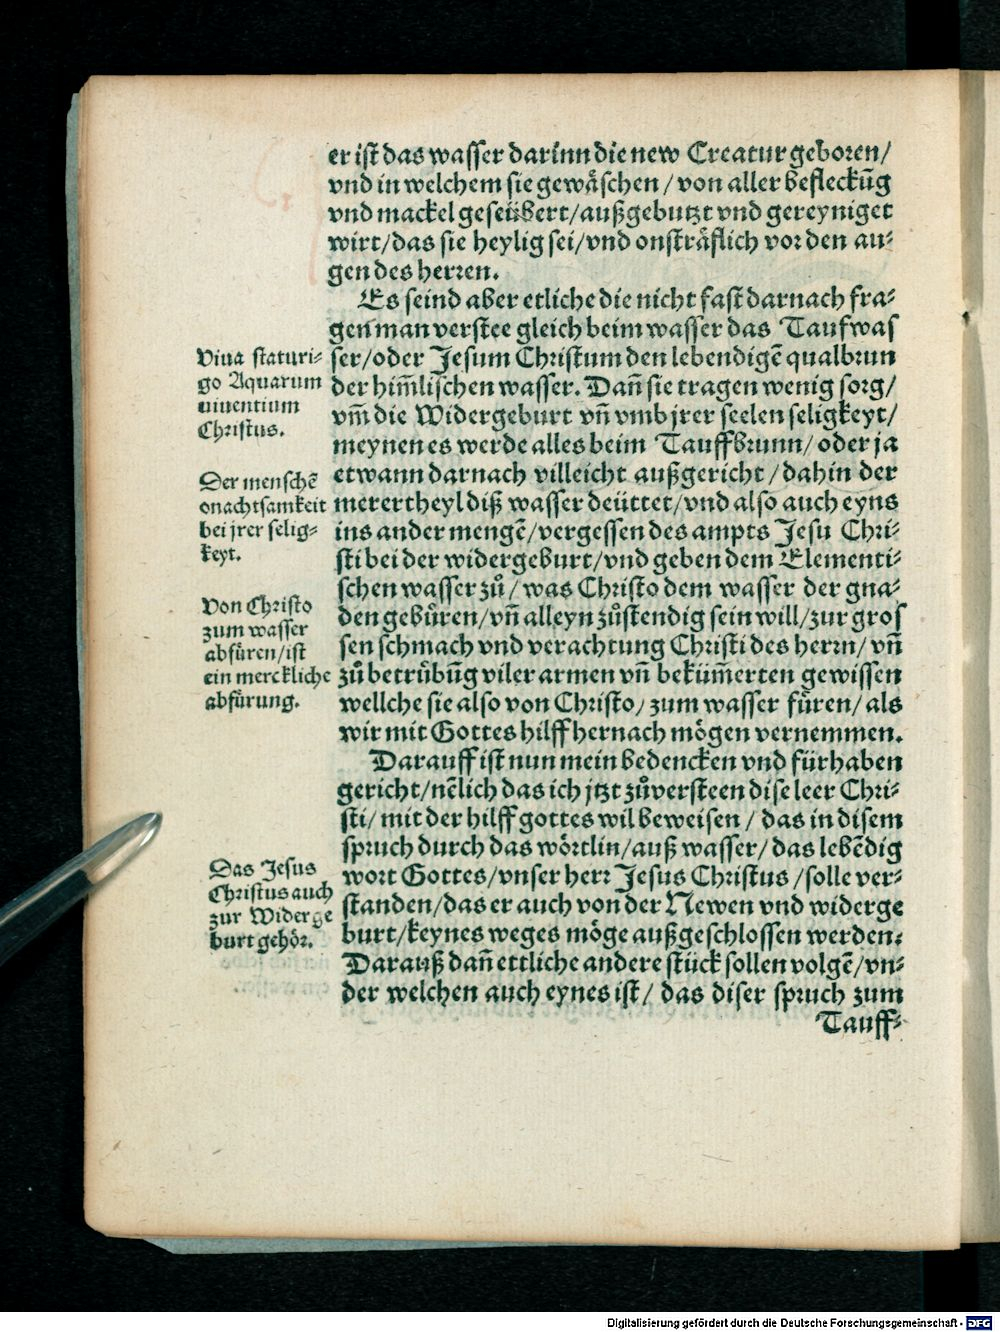 er ist das wasser darinn die new Creatur geboren/
vnd in welchem sie gewåschen / von aller befleckũg
vnd mackel geseübert/außgebutzt vnd gereyniget
wirt/das sie heylig sei/vnd onstråflich vor den au-
gen des herren.
Es seind aber etliche die nicht fast darnach fra-
gen man verstee gleich beim wasser das Taufwas
ser/oder Jesum Christum den lebendigẽ qualbrun
der him̃lischen wasser. Dañ sie tragen wenig sorg/
vm̃ die Widergeburt vñ vmb jrer seelen seligkeyt/
meynen es werde alles beim Tauffbrunn/oder ja
etwann darnach villeicht außgericht /dahin der
merertheyl diß wasser deüttet/vnd also auch eyns
ins ander mengẽ/vergessen des ampts Jesu Chri-
sti bei der widergeburt/vnd geben dem Elementi-
schen wasser zů/was Christo dem wasser der gna-
den gebůren/vñ alleyn zůstendig sein will/zur gros
sen schmach vnd verachtung Christi des herrn/vñ
zů betrůbũg viler armen vñ beküm̃erten gewissen
wellche sie also von Christo/zum wasser fůren/als
wir mit Gottes hilff hernach mögen vernemmen.
Darauff ist nun mein bedencken vnd fürhaben
gericht/nẽlich das ich jtzt zůversteen dise leer Chri-
sti/mit der hilff gottes wil beweisen / das in disem
spruch durch das wörtlin/auß wasser/das lebẽdig
wort Gottes/vnser herr Jesus Christus /solle ver-
standen/das er auch von der Newen vnd widerge
burt/keynes weges möge außgeschlossen werden.
Darauß dañ ettliche andere stück sollen volgẽ/vn-
der welchen auch eynes ist/das diser spruch zum
Tauff-
Viua staturi-
go Aquarum
uiuentium
Christus.
Der menschẽ
onachtsamkeit
bei jrer selig-
keyt.
Von Christo
zum wasser
abfůren/ist
ein merckliche
abfůrung.
Das Jesus
Christus auch
zur Widerge
burt gehör.
Digitalisierung gefördert durch die Deutsche Forschungsgemeinschaft - DFG